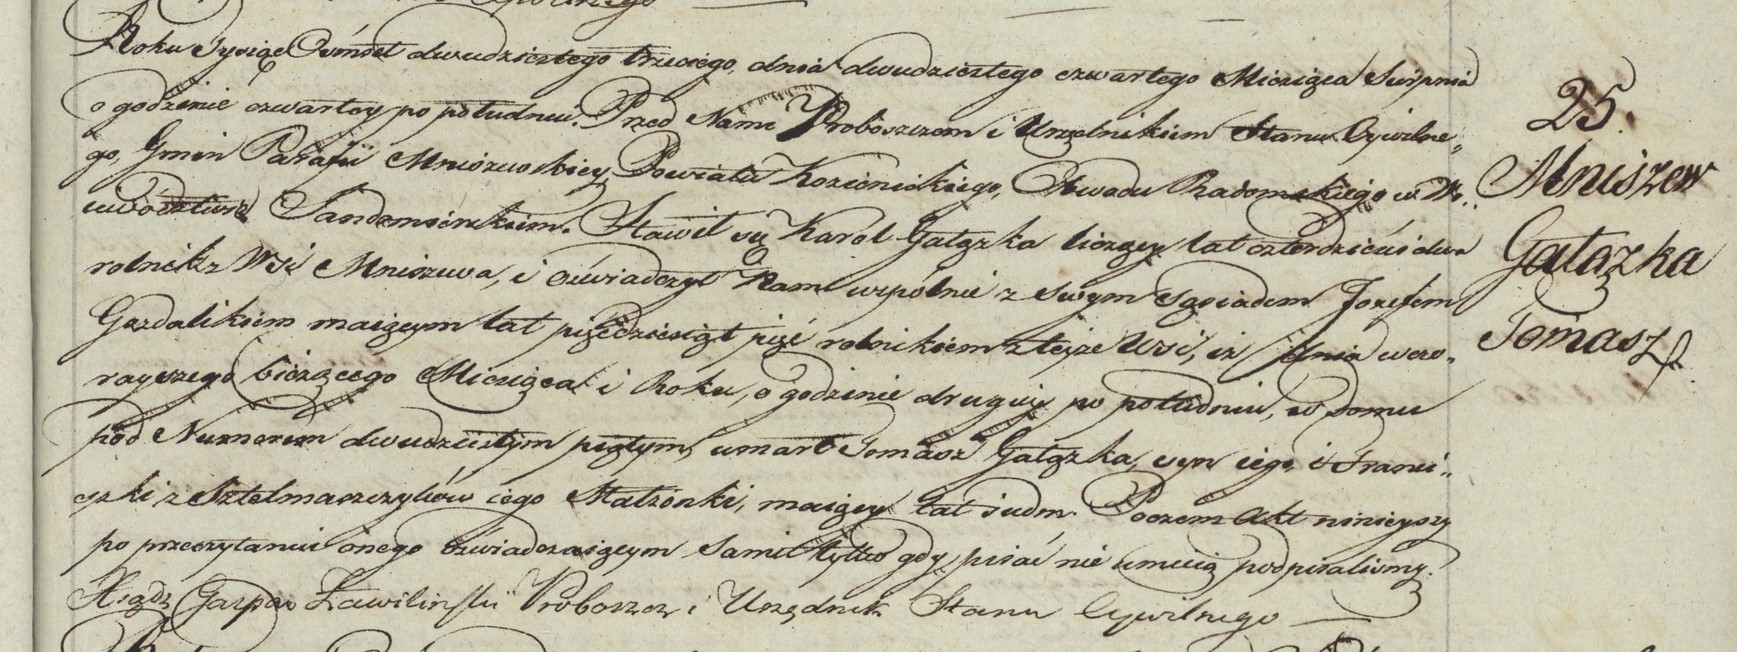 Roku Tysiąc Osmset dwudziestego trzeciego, dnia dwudziestego czwartego Miesiąca Sierpnia
o godzinie czwartey po południu. Przed Nami Proboszczem i Urzędnikiem Stanu Cywilne„
go, Gmin Parafii Mniszewskiey Powiatu Kozienickiego, Obwodu Radomskiego w Wo.
iewództwie Sandomirskiem. Stawił się Karol Gałązka liczący lat czterdzieści dwa
rolnik z Wsi Mniszewa, i oświadczył Nam wspólnie z swym Sąsiadem Jozefem
Gozdalikiem maiącym lat pięćdziesiąt pięć rolnikiem z teyże Wsi, iż dnia wczo„
rayszego bieżącego Miesiąca i Roku, o godzinie drugiey po południu, w domu
pod Numerem dwudziestym piątym umarł Tomasz Gałązka, syn iego i Franci„
szki z Sztelmaszczyków iego Małżonki, maiący lat siedm. Poczem Akt ninieyszy
po przeczytaniu onego oświadczaiącym Sami tylko gdy pisać nie umieią podpisaliśmy.
Xiądz Gaspar Zawiliński Proboszcz i Urzędnik Stanu Cywilnego
25.
Mniszew
Gałązka
Tomasz